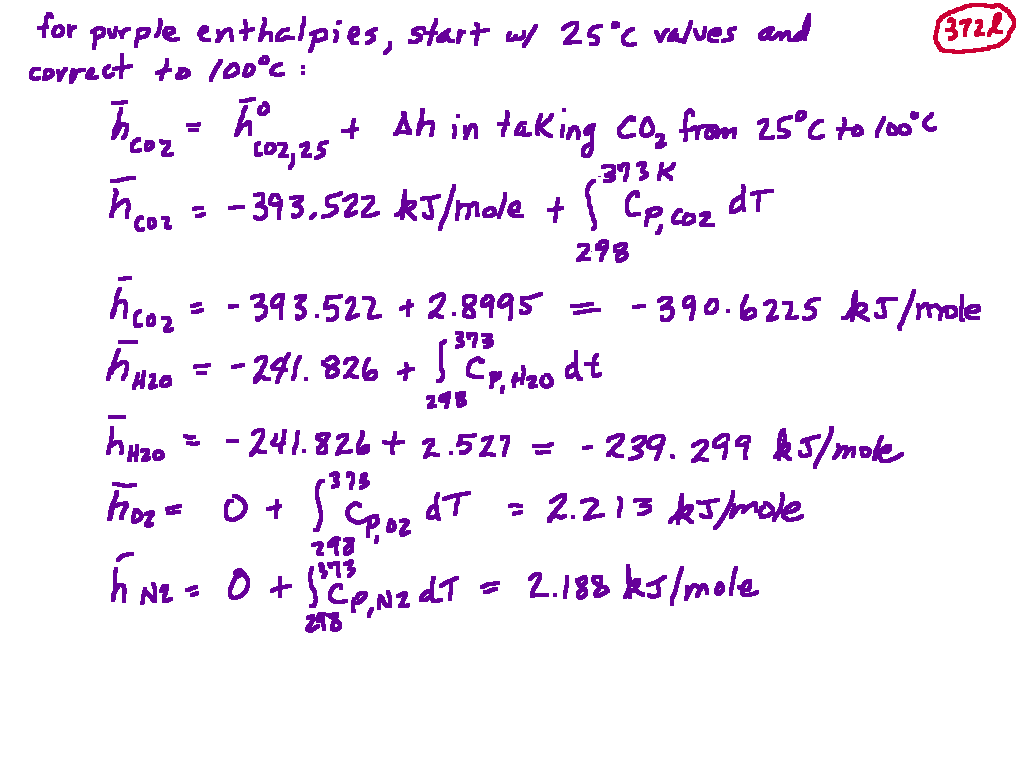 for purple enthalpies, start w/ 25°C values and
372l
correct to 100°C :
h̄CO2 = h̄°CO2,25 + Δh in taking CO2 from 25°C to 100°C
h̄CO2 = -393.522 kJ/mole + ∫298^373K CP,CO2 dT
h̄CO2 = -393.522 + 2.8995 = -390.6225 kJ/mole
h̄H2O = -241.826 + ∫298^373 CP,H2O dt
h̄H2O = -241.826 + 2.527 = -239.299 kJ/mole
h̄O2 = 0 + ∫298^373 CP,O2 dT = 2.213 kJ/mole
h̄N2 = 0 + ∫298^373 CP,N2 dT = 2.188 kJ/mole